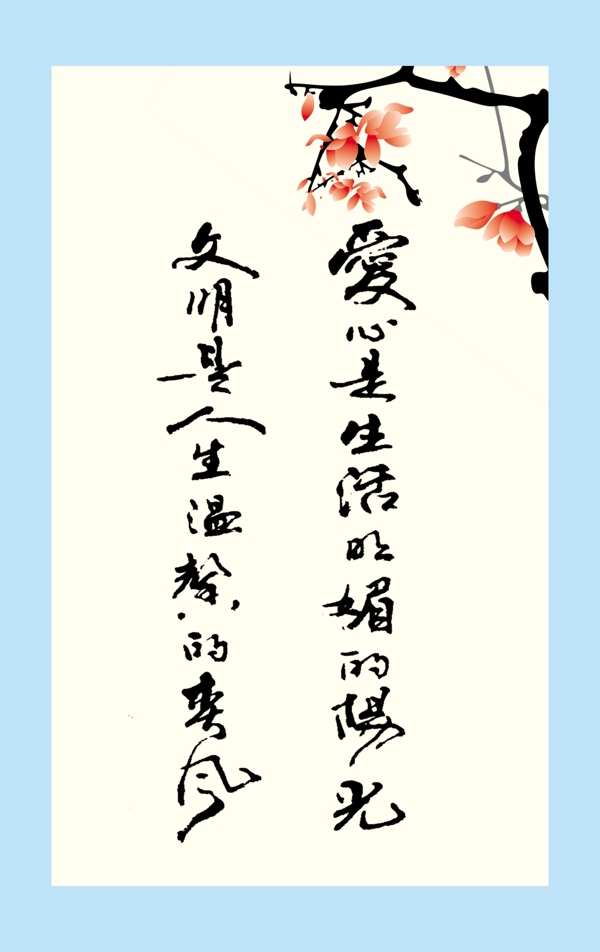 愛心是生活明媚的陽光
文明是人生温馨的春风